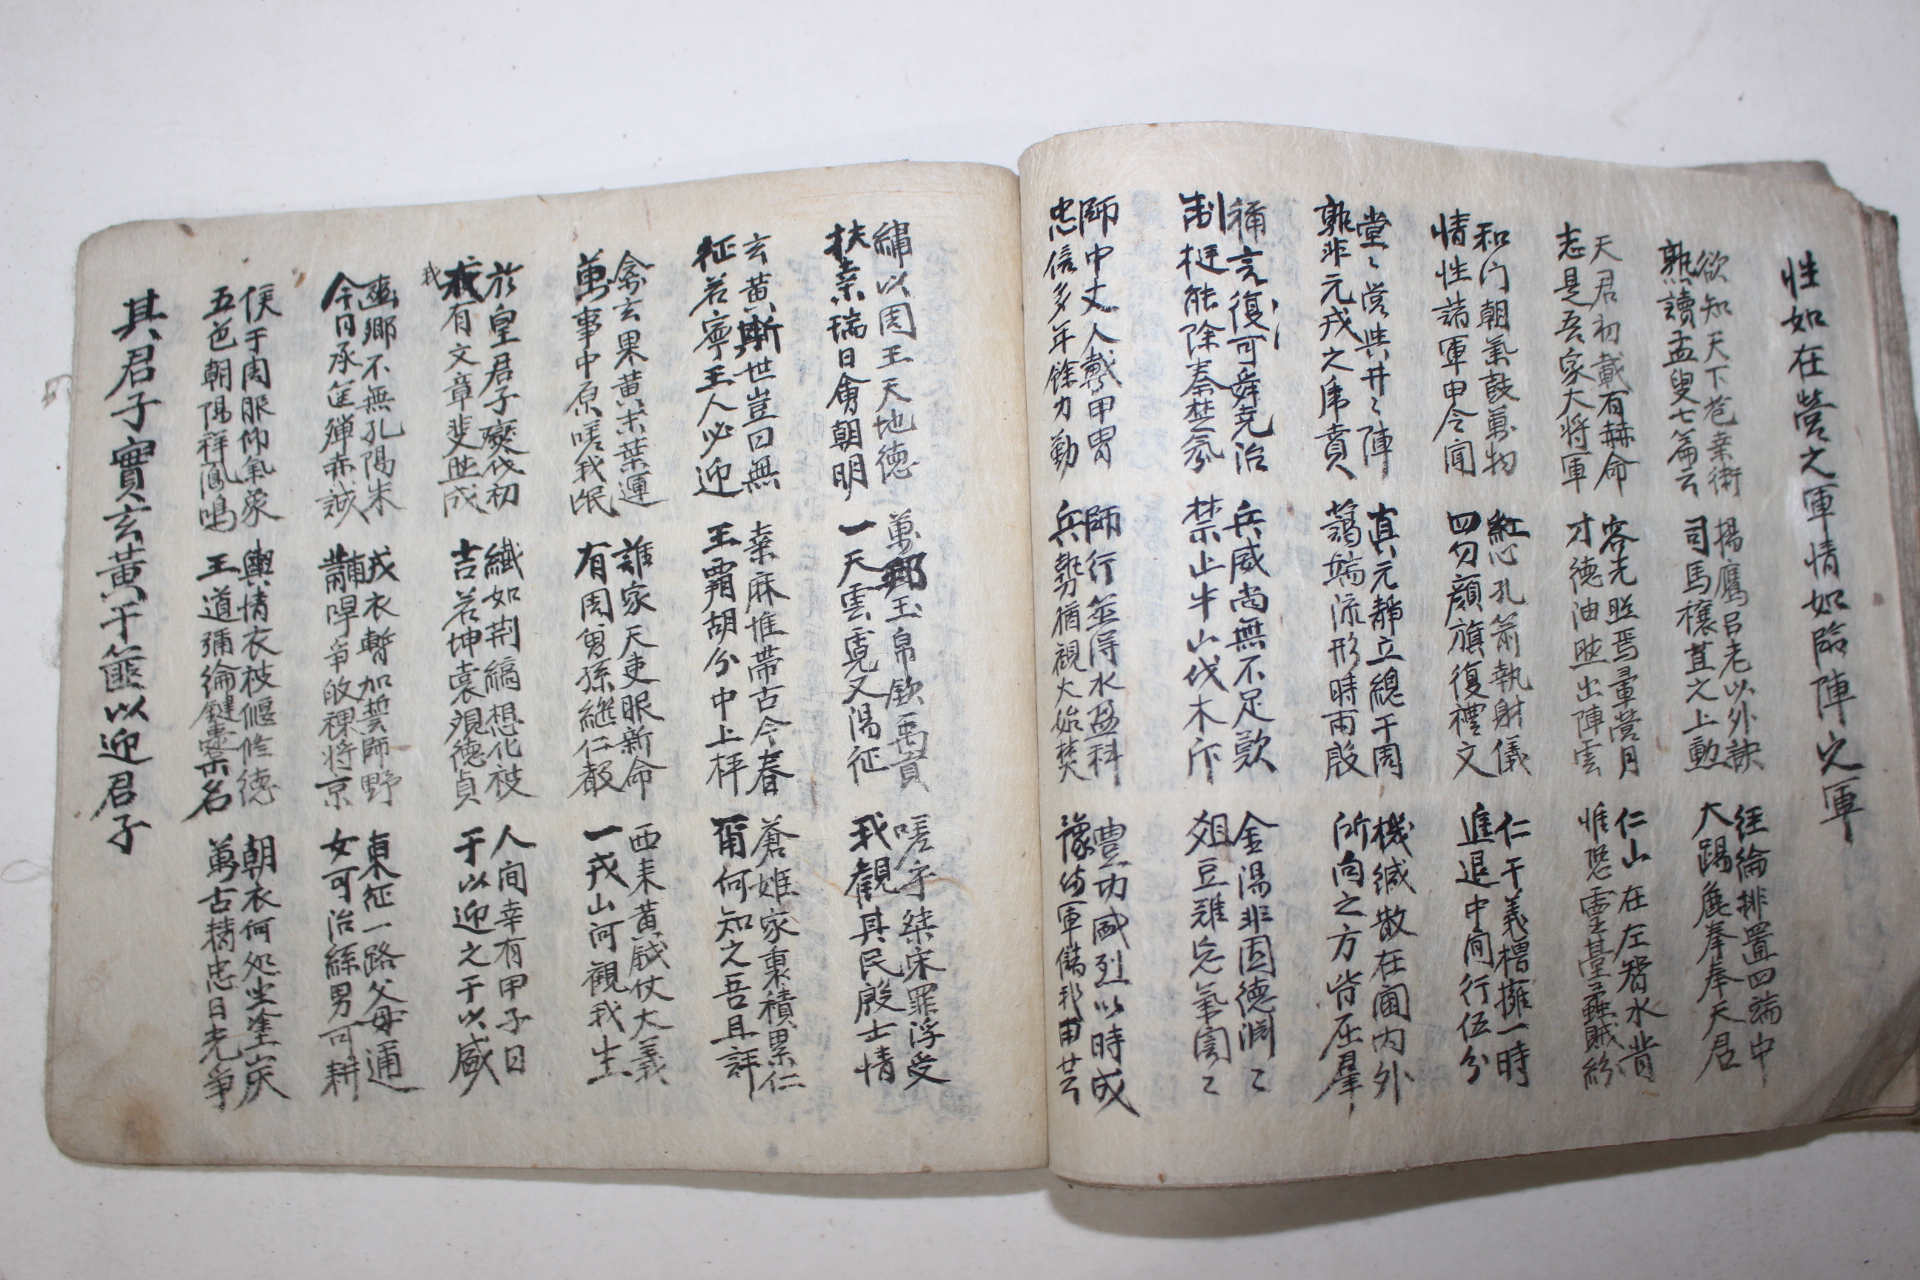 性如在營之軍情如臨陣之軍
欲知天下苞桑術
熟讀孟叟七篇云
揚鷹呂老以外訣
司馬穰苴之上勳
經綸排置四端中
大踢鹿拳奉天君
天君初載有赫命
志是吾家大將軍
容光照焉暈營月
才德油然出陣雲
仁山在左智水背
惟恐靈臺垂賊紛
和门朝氣鼓萬物
情性諸軍申令聞
紅心孔箭執射儀
四勿顔旗復禮文
仁干義櫓擁一時
進退中間行伍分
堂〻營與井〻陣
孰非元戎之虎賁
真元靜立總干周
藹端流形時雨殷
機緘散在閫內外
所向之方皆在羣
稱言復可舜堯治
制梃能除秦楚氛
兵威尚無不足歎
禁止牛山伐木斤
金湯非固德淵〻
俎豆雖 氣誾〻
師中丈人戴甲冑
忠信多年餘力勤
師行並得水盈科
兵勢猶觀火始焚
豊功盛烈以時成
豫備軍儲我甫芸
繡以周王天地德
扶桑瑞日會朝明
萬邦玉帛欽禹貢
一天雲霓又湯征
嗟乎桀宋罪浮受
我觀其民殷士情
玄黃斯世豈曰無
征若寧王人必迎
桑麻惟帶古今春
王霸胡分中上枰
蒼姬家裏積累仁
爾何知之吾且評
禽玄果黃未葉運
萬事中原嗟我氓
誰家天吏服新命
有周曾孫繼仁聲
西來黃鉞仗大義
一戎山河觀我生
於皇君子燮伐初
我有文章斐然成
纖如荆縞想化被
吉若坤裳覩德貞
人間幸有甲子日
于以迎之于以盛
豳鄉不無孔陽朱
今日承筐殫赤誠
戎衣暫加誓師野
黼冔爭 裸將京
東征一路父母邇
女可治絲男可耕
侯于周服仰氣象
五色朝陽祥鳳鳴
輿情衣被偃修德
王道彌綸鍵櫜名
朝衣何処坐塗炭
萬古精忠日光爭
其君子實玄黃于篚以迎君子